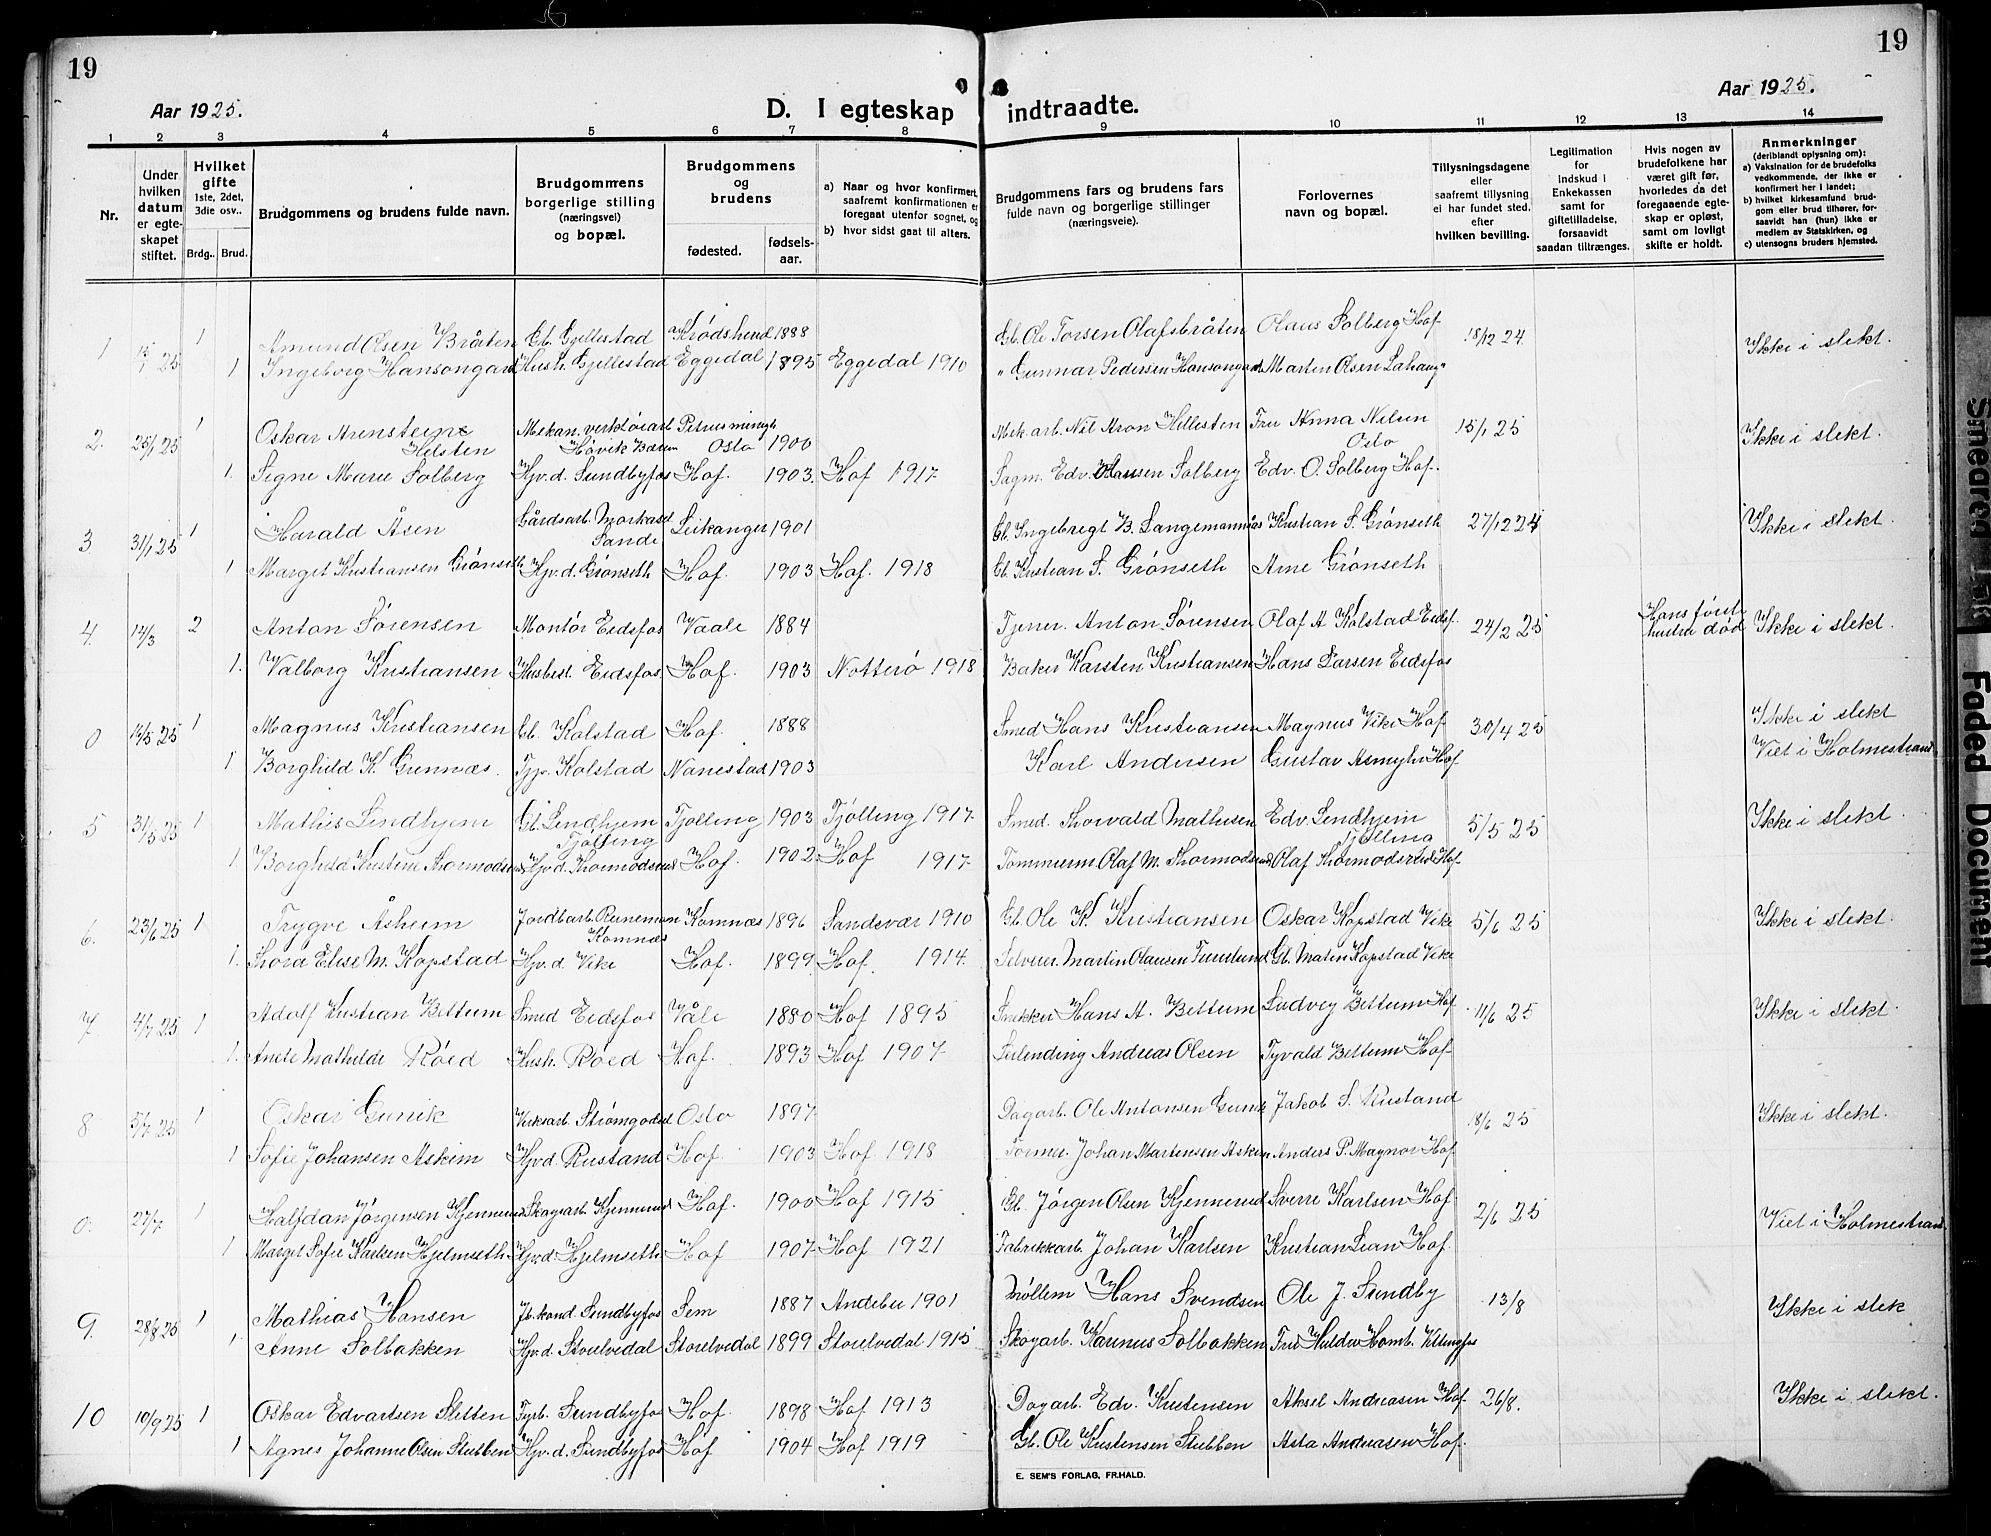 19
19
Aar 1925.
D. I egteskap indtraadte.
Aar 1925.
1 2 3 4 5 6 7 8 9 10 11 12 13 14
Nr.
Under hvilken datum er egteskapet stiftet.
Hvilket gifte 1ste, 2det, 3die osv..
Brdg.. Brud.
Brudgommens og brudens fulde navn.
Brudgommens borgerlige stilling (næringsvei) og bopæl.
Brudgommens og brudens
fødested. fødselsaar.
a) Naar og hvor konfirmert, saafremt konfirmationen er foregaat utenfor sognet, og
b) hvor sidst gaat til alters.
Brudgommens fars og brudens fars fulde navn og borgerlige stillinger (næringsveie).
Forlovernes navn og bopæl.
Tillysningsdagene eller saafremt tillysning ei har fundet sted. efter hvilken bevilling.
Legitimation for indskud i Enkekassen samt for giftetilladelse, forsaavidt saadan tiltrænges.
Hvis nogen av brudefolkene har været gift før, hvorledes da det foregaaende egteskap er opløst, samt om lovligt skifte er holdt.
Anmerkninger (deriblandt oplysning om):
a) Vaksination for de brudefolks vedkommende, der ikke er konfirmert her i landet;
b) hvilket kirkesamfund brudgom eller brud tilhører, forsaavidt han (hun) ikke er medlem av Statskirken, og
c) utensogns bruders hjemsted.
1 25 1 Amund Olsen Bråten Gb. Gjellestad Krødsherad 1888 Gb. Ole Torsen Olafsbråten Olaus Solberg Hof 18/12 24 Ikke i slekt.
1 Ingeborg Hansongard Hush. Gjellestad Eggedal 1895 Eggedal 1910 " Gunnar Pedersen Hansongard Marten Olsen Lahaug "
2. 25/1 25 1 Oskar Arensteine Helsten Mekan. verktøiarb. Høvik Bærum Petrus menigh. Oslo 1900 Mek. arb. Nil Aron Hellesten Fru Anna Nilsen Oslo 15/1 25 Ikke i slekt.
1. Signe Marie Solberg Hjv. d. Sundbyfos Hof. 1903. Hof 1917. Sagm. Edv. Hansen Solberg Edv. O. Solberg Hof.
3 31/1 25 1 Harald Åsen Gårdsarb. Sande Leikanger 1901 Gb. Ingebregt B. Langemannås Kristian S. Grønseth 27/12 24 Ikke i slekt.
1 Marget Kristiansen Grønseth Hjv. d. Grønseth Hof. 1903 Hof. 1918 Gb. Kristian S. Grønseth Arne Grønseth
4. 14/3 2 Anton Sørensen Montør Eidsfos Vaale 1884 Tjener. Anton Sørensen Olaf A Kolstad Eidsf. 24/2 25 Hans først hustru død Ikke i slekt.
1. Valborg Kristiansen Husbest. Eidsfos. Hof. 1903 Notterø 1918 Baker Karsten Kristiansen Hans Larsen Eidsfos
0 14/5 25 1 Magnus Kristiansen Gb. Kolstad Hof. 1888 Smed Hans Kristiansen Magnus Vike Hof 30/4 25 Ikke i slekt
1 Borghild K. Gunnæs. Tjp. Kolstad Nanestad 1903 Karl Andersen Gustav Asmyhr Hof. Viet i Holmestrand
5 31/5 25 1 Mathis Lindhjem Gb. Lindhjem Tjølling Tjølling 1903 Tjølling 1917. Smed. Thorvald Mathisen Edv. Lindhjem Tjølling 5/5 25 Ikke i slekt.
1. Borghild Kristine Thormodsrud Hjv. d. Thormodsrud Hof. 1902. Hof 1917. Tømmerm. Olaf M. Thormodsrud Olaf Thormodsrud Hof
6. 23/6 25 1 Trygve Åsheim Jordbarb. Komnæs Komnæs 1896 Sandsvær 1910 Gb. Ole K. Kristiansen Oskar Kopstad Vike 5/6 25 Ikke i slekt.
1. Thora Elise M. Kopstad Hjv. d. Vike Hof. 1899. Hof. 1914. Selveier. Martin Olausen Gb. Matin Kopstad Vike
7 4/7 25 1 Adolf Kristian Bettum Smed Eidsfos Våle 1880 Hof 1895 Snekker Hans A. Bettum Ludvig Bettum Hof 11/6 25 Ikke i slekt.
1. Anete Mathilde Røed Hush. Røed Hof. 1893 Hof 1907. Seilending Andreas Olsen Tyvald Bettum Hof
8 5/7 25 1 Oskar Gunik Verksarb. Strømgodset Oslo 1897 Dagarb. Ole Antonsen Gunik Jakob S. Rustand 18/6 25 Ikke i slekt.
1 Sofie Johansen Askim Hjv. d. Rustand Hof 1903 Hof. 1918 Former. Johan Martensen Askim Anders P. Magnor Hof
0. 27/7. 1 Halfdan Jørgensen Kjennerud Skogsarb. Kjennerud Hof. 1900 Hof 1915 Gb. Jørgen Olsen Kjennerud Sverre Karlsen Hof 2/6 25 Viet i Holmestrand
1 Marget Sofie Karlsen Hjelmseth. Hjv. d. Hjelmseth. Hof 1907. Hof 1921 Fabrikkarb. Johan Karlsen Kristian Lian Hof.
9. 28/8 25 1 Mathias Hansen Jb. kond. Sundbyfos Sem 1887 Andebu 1901 Møllem Hans Svendsen Ole J. Sundby 13/8 Ikke i slek
1 Anne Solbakken Hjv. d. Storelvedal Storelvedal 1899 Storelvedal 1915 Skogarb. Karinus Solbakken Fru Hulda Homb. Vittingfos
10 10/9 25 1 Oskar Edvartsen Sletten Fyrb. Sundbyfos Hof. 1898 Hof 1913 Dagarb. Edv. Kristensen Aksel Andreasen Hof. 26/8. Ikke i slekt.
1 Agnes Johanne Olsen Stubben Hjv. d. Sundbyfos Hof 1904 Hof 1919 Gb. Ole Kristensen Stubben Asta Andreasen Hof.
E. SEM'S FORLAG, FR.HALD.
Smeared Ink
Faded Document